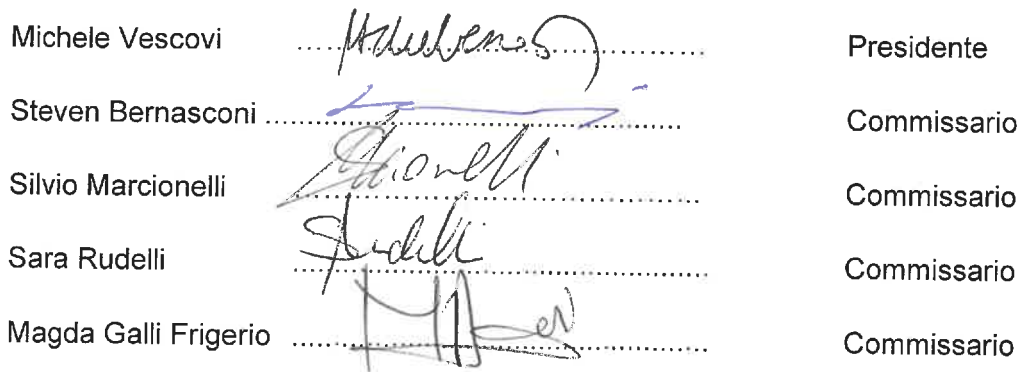 Michele Vescovi Presidente
Steven Bernasconi Commissario
Silvio Marcionelli Commissario
Sara Rudelli Commissario
Magda Galli Frigerio Commissario